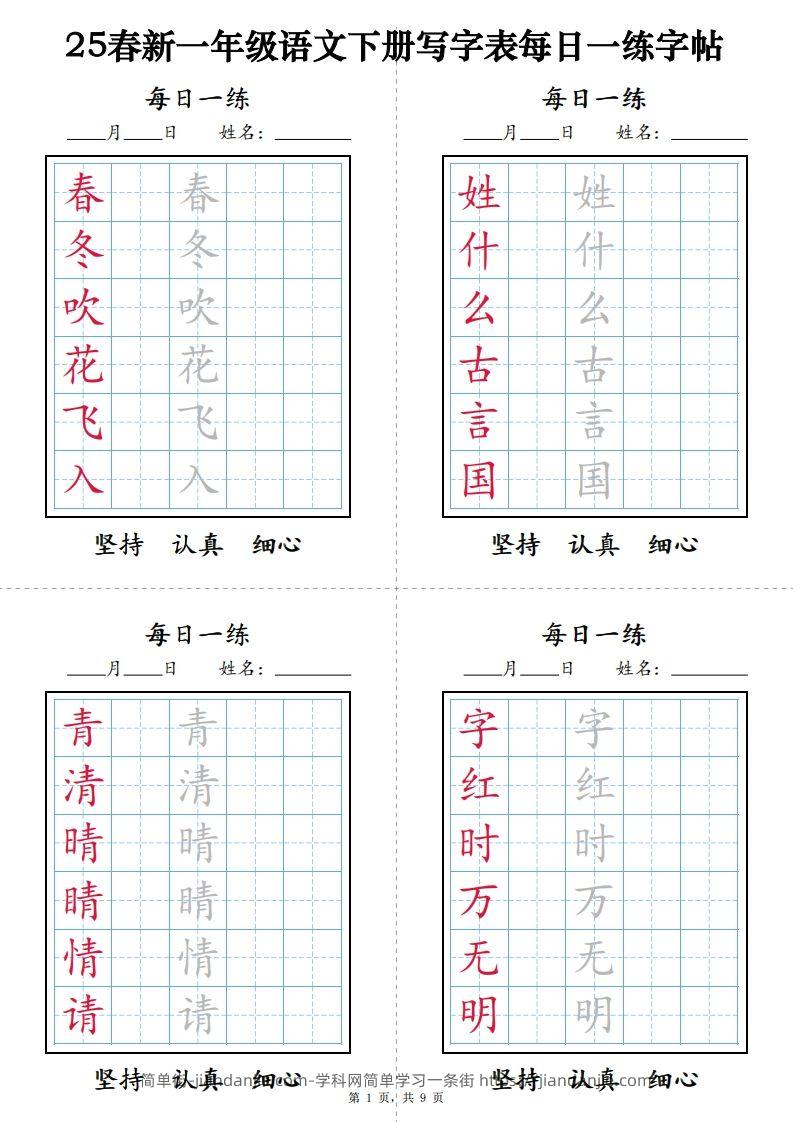 25春新一年级语文下册写字表每日一练字帖
每日一练
____月____日 姓名：________
春 春
冬 冬
吹 吹
花 花
飞 飞
入 入
坚持 认真 细心
每日一练
____月____日 姓名：________
姓 姓
什 什
么 么
古 古
言 言
国 国
坚持 认真 细心
每日一练
____月____日 姓名：________
青 青
清 清
晴 晴
睛 睛
情 情
请 请
坚持 认真 细心
每日一练
____月____日 姓名：________
字 字
红 红
时 时
万 万
无 无
明 明
坚持 认真 细心
学科网简单学习一条街
第 1 页，共 9 页